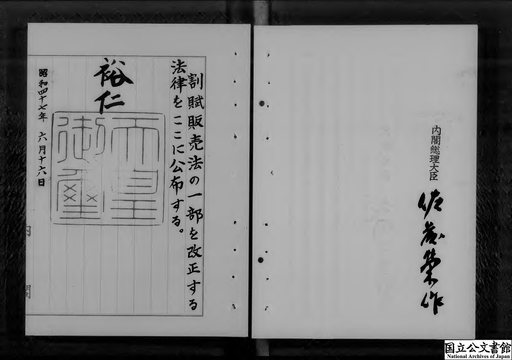 割賦販売法の一部を改正する
法律をここに公布する。
裕仁
天皇
御璽
昭和四十七年 六月十六日
内閣
内閣総理大臣
佐藤榮作
国立公文書館
National Archives of Japan